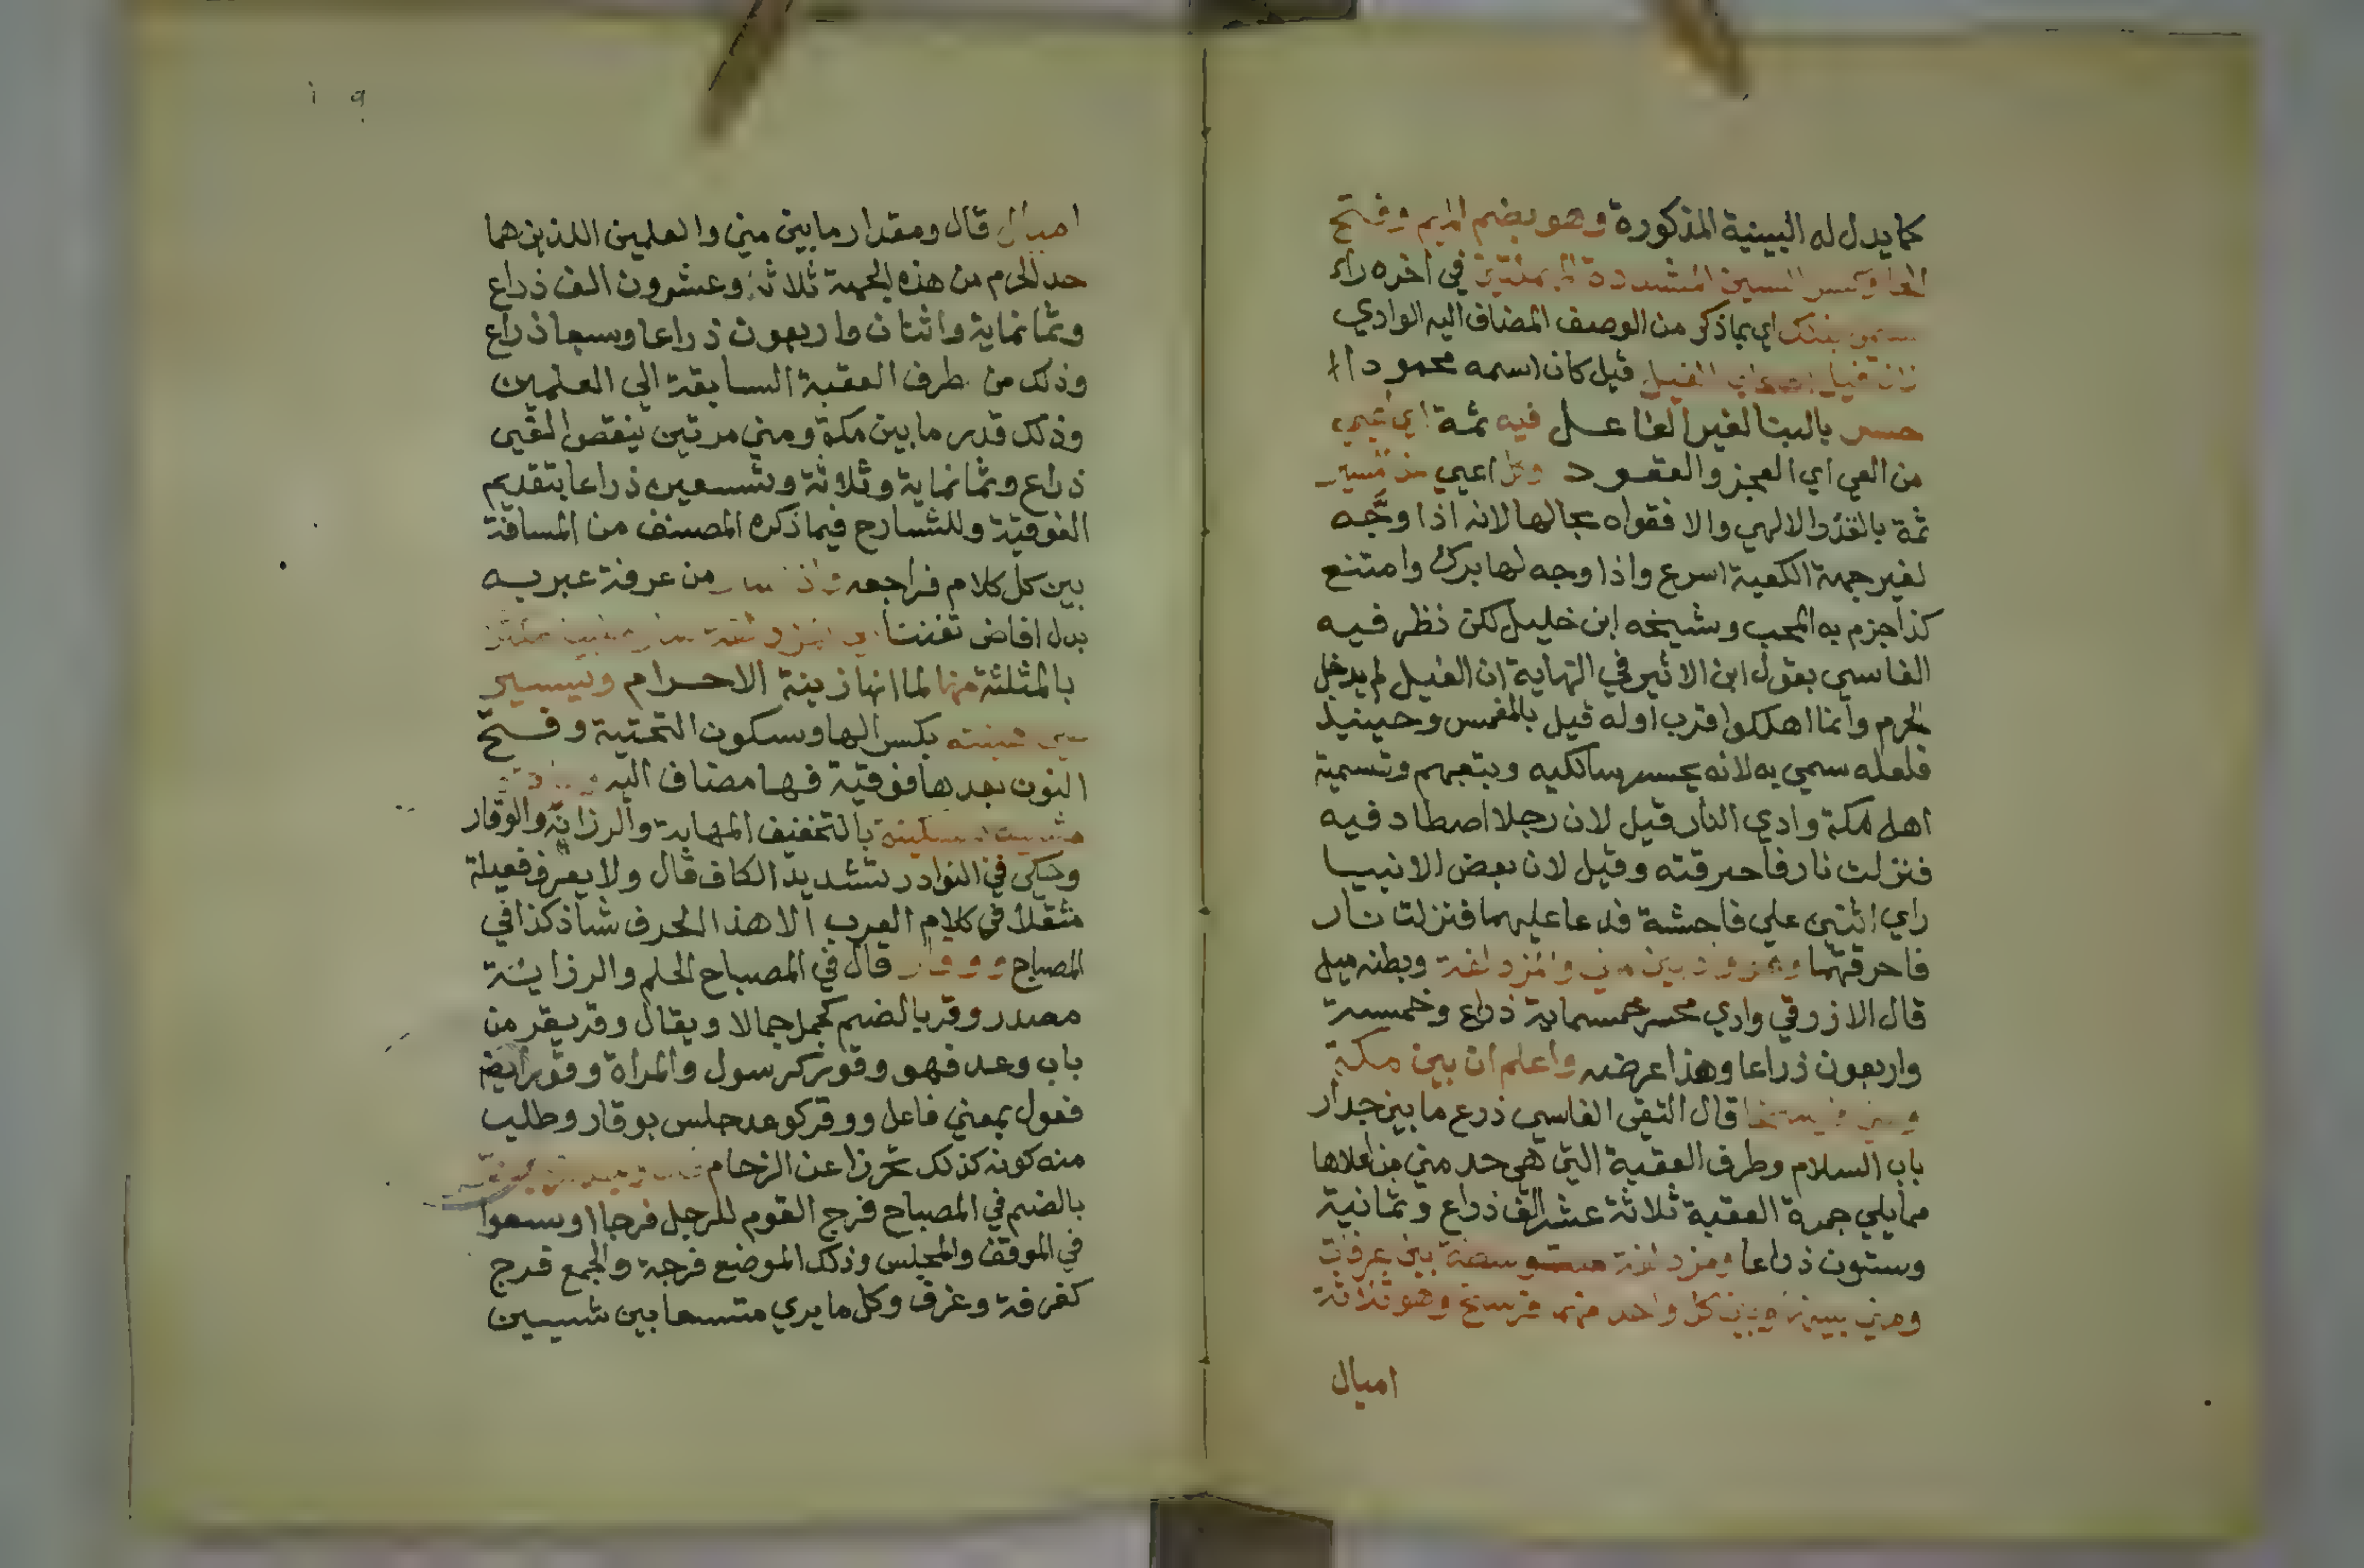 كما يدل له البينية المذكورة وهو بضم الميم وفتح
الحا وكسر السين المشددة المهملتين في اخره راء
سمي بذلك اي بما ذكر من الوصف المضاف اليه الوادي
لان فيل اصحاب الفيل قيل كان اسمه محمودا
حسر بالبنا لغير الفاعل فيه ثمة اي اعيي
من العي اي العجز والعقود وكل اعيي عن المسير
ثمة بالقدر الالهي والا فقواه بحالها لانه اذا وجه
لغير جهة الكعبة اسرع واذا وجه لها برك وامتنع
كذا جزم به المحب وشيخه ابن خليل لكن نظر فيه
الفاسي بقول ابن الاثير في النهاية ان الفيل لم يدخل
الحرم وانما اهلكوا قرب اوله قيل بالمغمس وحينيذ
فلعله سمي به لانه يحسر سالكيه ويتعبهم وتسمية
اهل مكة وادي النار قيل لان رجلا اصطاد فيه
فنزلت نار فاحرقته وقيل لان بعض الانبيا
راي اثنين علي فاحشة فدعا عليهما فنزلت نار
فاحرقتهما وهو واد بين مني والمزدلفة وبطنه ميل
قال الازرقي وادي محسر خمسماية ذراع وخمسة
واربعون ذراعا وهذا عرضه واعلم ان بين مكة
ومني فرسخا قال التقي الفاسي ذرع ما بين جدار
باب السلام وطرف العقبة التي هي حد مني من اعلاها
مما يلي جمرة العقبة ثلاثة عشر الف ذراع وثمانية
وستون ذراعا ومزدلفة متوسطة بين عرفات
ومني بينها وبين كل واحد منهما فرسخ وهو ثلاثة
اميال
اميال قال ومقدار ما بين مني والعلمين اللذين هما
حد الحرم من هذه الجهة ثلاثة وعشرون الف ذراع
وثمانماية واثنان واربعون ذراعا وسبعا ذراع
وذلك من طرف العقبة السابقة الي العلمين
وذلك قدر ما بين مكة ومني مرتين ينقص الفي
ذراع وثمانماية وثلاثة وتسعين ذراعا بتقديم
الفوقية وللشارح فيما ذكره المصنف من المسافة
بين كل كلام فراجعه واذا سار من عرفة عبر به
بدل افاض تفننا
بالمثلثة منها لما انها زينة الاحرام ويسير
علي هينته بكسر الها وسكون التحتية وفتح
النون بعدها فوقية فها مضاف اليه
سكينة بالتخفيف المهابة والرزانة والوقار
وحكي في النوادر تشديد الكاف قال ولا يعرف فعيلة
مثقلا في كلام العرب الا هذا الحرف شاذ كذا في
المصباح ووقار قال في المصباح الحلم والرزانة
مصدر وقر بالضم كجمل جمالا ويقال وقر يقر من
باب وعد فهو وقور كرسول والمراة وقور ايضا
فعول بمعني فاعل ووقر كوعد جلس بوقار وطلب
منه كونه كذلك تحرزا عن الزحام
بالضم في المصباح فرج القوم للرجل فرجا اوسعوا
في الموقف والمجلس وذلك الموضع فرجة والجمع فرج
كغرفة وغرف وكل ما يري متسعا بين شييين